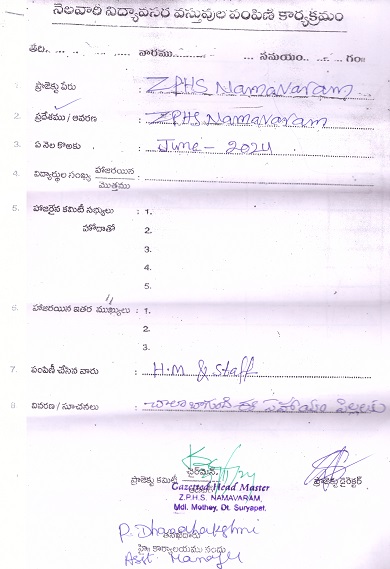 నెలవారీ విద్యావసర వస్తువుల పంపిణి కార్యక్రమం
తేది.. వారము...... సమయం... గం॥
1. ప్రాజెక్టు పేరు : ZPHS Namavaram
2. ప్రదేశము / ఆవరణ : ZPHS Namavaram
3. ఏ నెల కొఱకు : June - 2024
4. విద్యార్థుల సంఖ్య హాజరయిన :
మొత్తము
5. హాజరైన కమిటీ సభ్యులు : 1.
హోదాతో 2.
3.
4.
5.
6. హాజరయిన ఇతర ముఖ్యులు : 1.
2.
3.
7. పంపిణీ చేసిన వారు : H.M & Staff
8. వివరణ / సూచనలు : చాలా బాగుంది ఈ సహాయం పిల్లలకు
ఛైర్మెన్
ప్రాజెక్టు కమిటీ ప్రాజెక్టు డైరెక్టర్
Gazetted Head Master
Z.P.H.S. NAMAVARAM,
Mdl. Mothey, Dt. Suryapet.
P. Dhanalakshmi
హె॥ కార్యాలయము నందు
Asst. Manager